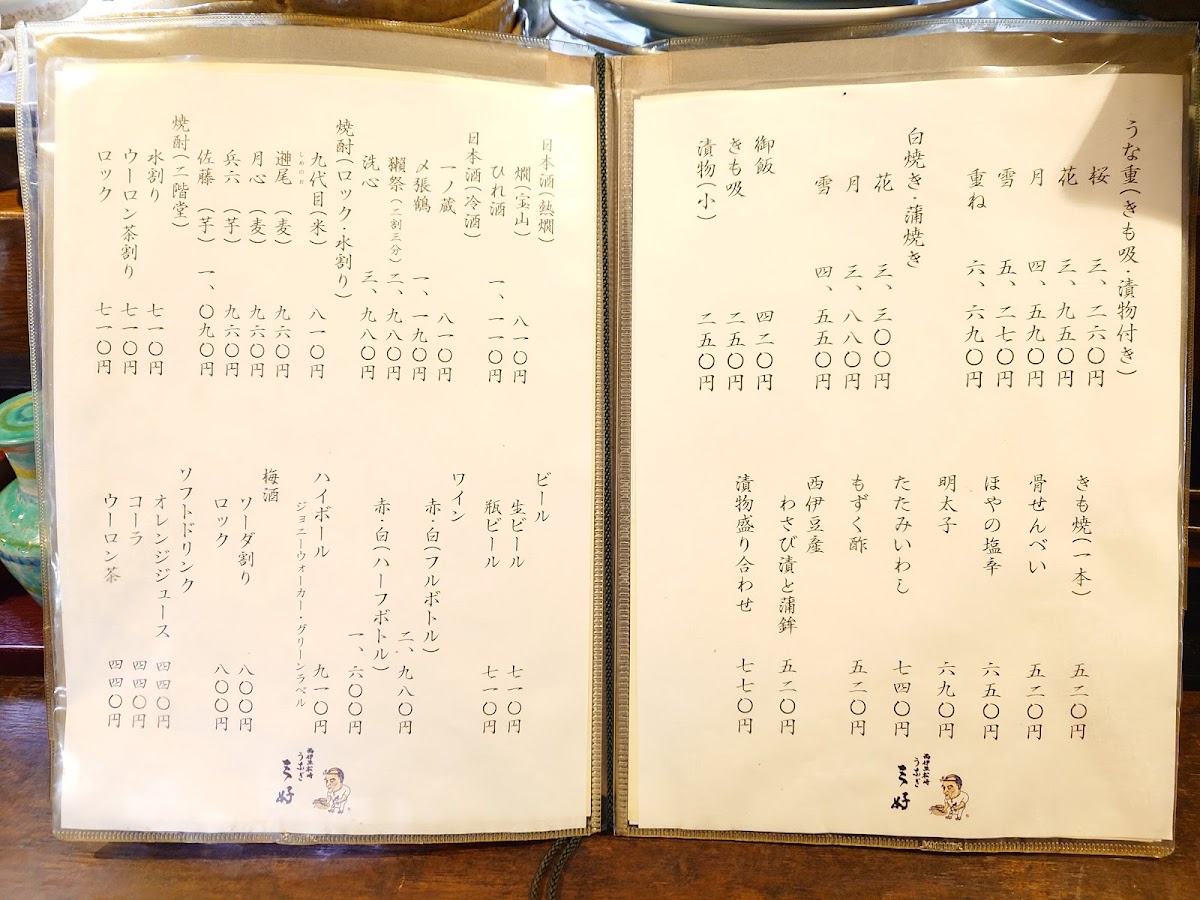 うな重(きも吸・漬物付き)
桜 三、二六〇円
花 三、九五〇円
月 四、五九〇円
雪 五、二七〇円
重ね 六、六九〇円
白焼き・蒲焼き
花 三、三〇〇円
月 三、八八〇円
雪 四、五五〇円
御飯 四二〇円
きも吸 二五〇円
漬物(小) 二五〇円
きも焼(一本) 五二〇円
骨せんべい 五二〇円
ほやの塩辛 六五〇円
明太子 六九〇円
たたみいわし 七四〇円
もずく酢 五二〇円
西伊豆産
わさび漬と蒲鉾 五二〇円
漬物盛り合わせ 七七〇円
西伊豆松崎
うなぎ
三好
日本酒(熱燗)
燗(宝山) 八一〇円
ひれ酒 一、一一〇円
日本酒(冷酒)
一ノ蔵 八一〇円
〆張鶴 一、一九〇円
獺祭(二割三分) 二、九八〇円
洗心 三、九八〇円
焼酎(ロック・水割り)
九代目(米) 八一〇円
しめのお
遊尾(麦) 九六〇円
月心(麦) 九六〇円
兵六(芋) 九六〇円
佐藤(芋) 一、〇九〇円
焼酎(二階堂)
水割り 七一〇円
ウーロン茶割り 七一〇円
ロック 七一〇円
ビール
生ビール 七一〇円
瓶ビール 七一〇円
ワイン
赤・白(フルボトル) 二、九八〇円
赤・白(ハーフボトル) 一、六〇〇円
ハイボール 九一〇円
ジョニーウォーカー・グリーンラベル
梅酒
ソーダ割り 八〇〇円
ロック 八〇〇円
ソフトドリンク
オレンジジュース 四四〇円
コーラ 四四〇円
ウーロン茶 四四〇円
西伊豆松崎
うなぎ
三好